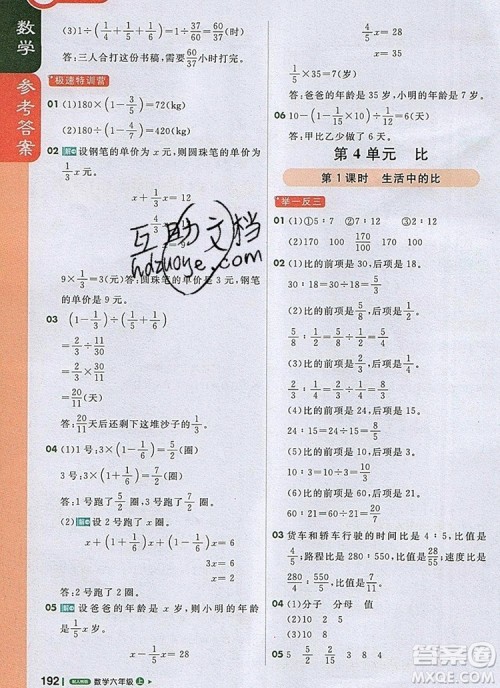 数学
参考答案
(3)1÷(1/60+1/…)=1÷37/60=60/37(时)
答:三人合打这份书稿,需要60/37小时。
极速特训营
01 (1)180×(1-3/5)=72(kg)
(2)180÷(1-…)=…(kg)
02 解 设钢笔的单价为x元,则圆珠笔的单价为
1/3 x元。
x+1/3 x=12
4/3 x=12
x=9
9×1/3=3(元)答:圆珠笔的单价是3元,钢笔
的单价是9元。
03 (1-1/3)÷(1/5+1/6)
=2/3÷11/30
=2/3×30/11
=20/11(天)
答:20/11天后还剩下这堆沙子的1/3。
04 (1)1号:3×(1-1/6)=5/2(圈)
3号:3×(1+1/6)=7/2(圈)
答:1号跑了5/2圈,3号跑了7/2圈。
(2)解 设2号跑了x圈。
x+(1-1/6)x+(1+1/6)x=6
3x=6
x=2
答:2号跑了2圈。
05 解 设爸爸的年龄是x岁,则小明的年龄是
1/5 x岁。
x-1/5 x=28
192 配人教版 数学六年级 上
4/5 x=28
x=35
1/5×35=7(岁)
答:爸爸的年龄是35岁,小明的年龄是7岁。
06 (1-1/10×10)÷(1/…)=6(天)
答:甲比乙少做了6天。
第4单元 比
第1课时 生活中的比
举一反三
01 (1)①5∶7 ②7∶2 ③5∶2
(2)170∶100 170/100 170 100
02 (1)比的前项是30,后项是18。
30∶18=30÷18=5/3
(2)比的前项是5/8,后项是1/2。
5/8∶1/2=5/8÷1/2=5/4
(3)比的前项是24,后项是15。
24∶15=24÷15=8/5
(4)比的前项是10,后项是3。
10∶3=10÷3=10/3
(5)比的前项是60,后项是21。
60∶21=60÷21=20/7
03 货车和轿车行驶的时间比是4∶5,比值是
4/5;路程比是280∶550,比值是28/55;速度比是
280/4∶550/5,比值是7/11。
04 (1)√ (2)× (3)√
05 5 4 12 30
互助文档
hdzuoye.com
答案圈
MXQE.COM